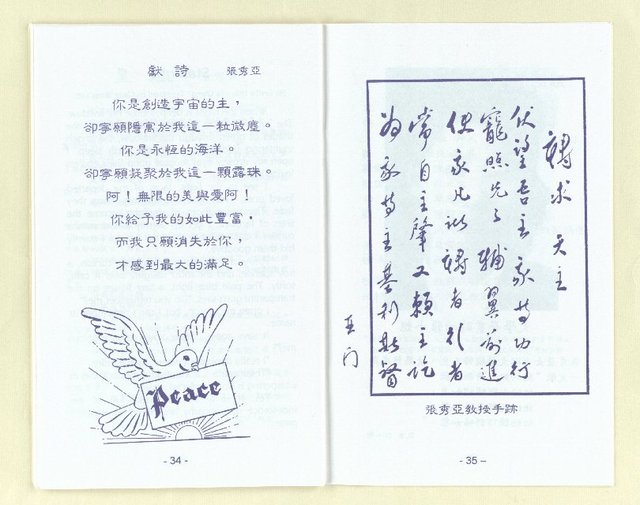 獻詩 張秀亞
你是創造宇宙的主，
卻寧願隱寓於我這一粒微塵。
你是永恆的海洋。
卻寧願凝聚於我這一顆露珠。
阿！無限的美與愛阿！
你給予我的如此豐富，
而我只願消失於你，
才感到最大的滿足。
Peace
- 34 -
禱求 天主
伏望吾主 我等功行
寵照先之 輔翼前進
使我凡諸禱者行者
常自主肇 又賴主訖
為我等主基利斯督
亞門
張秀亞教授手跡
- 35 -